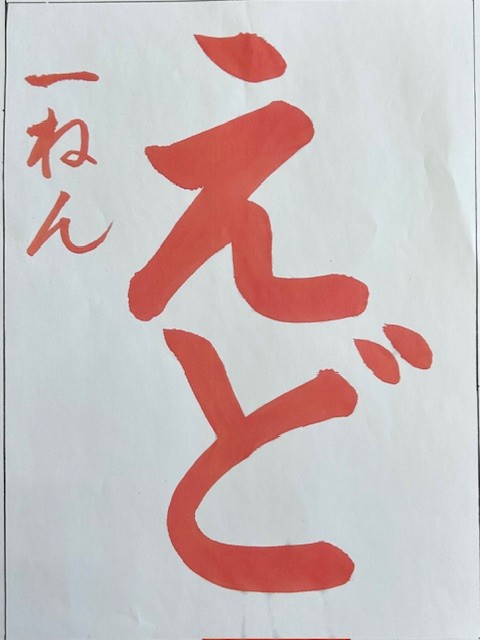 えど
一ねん